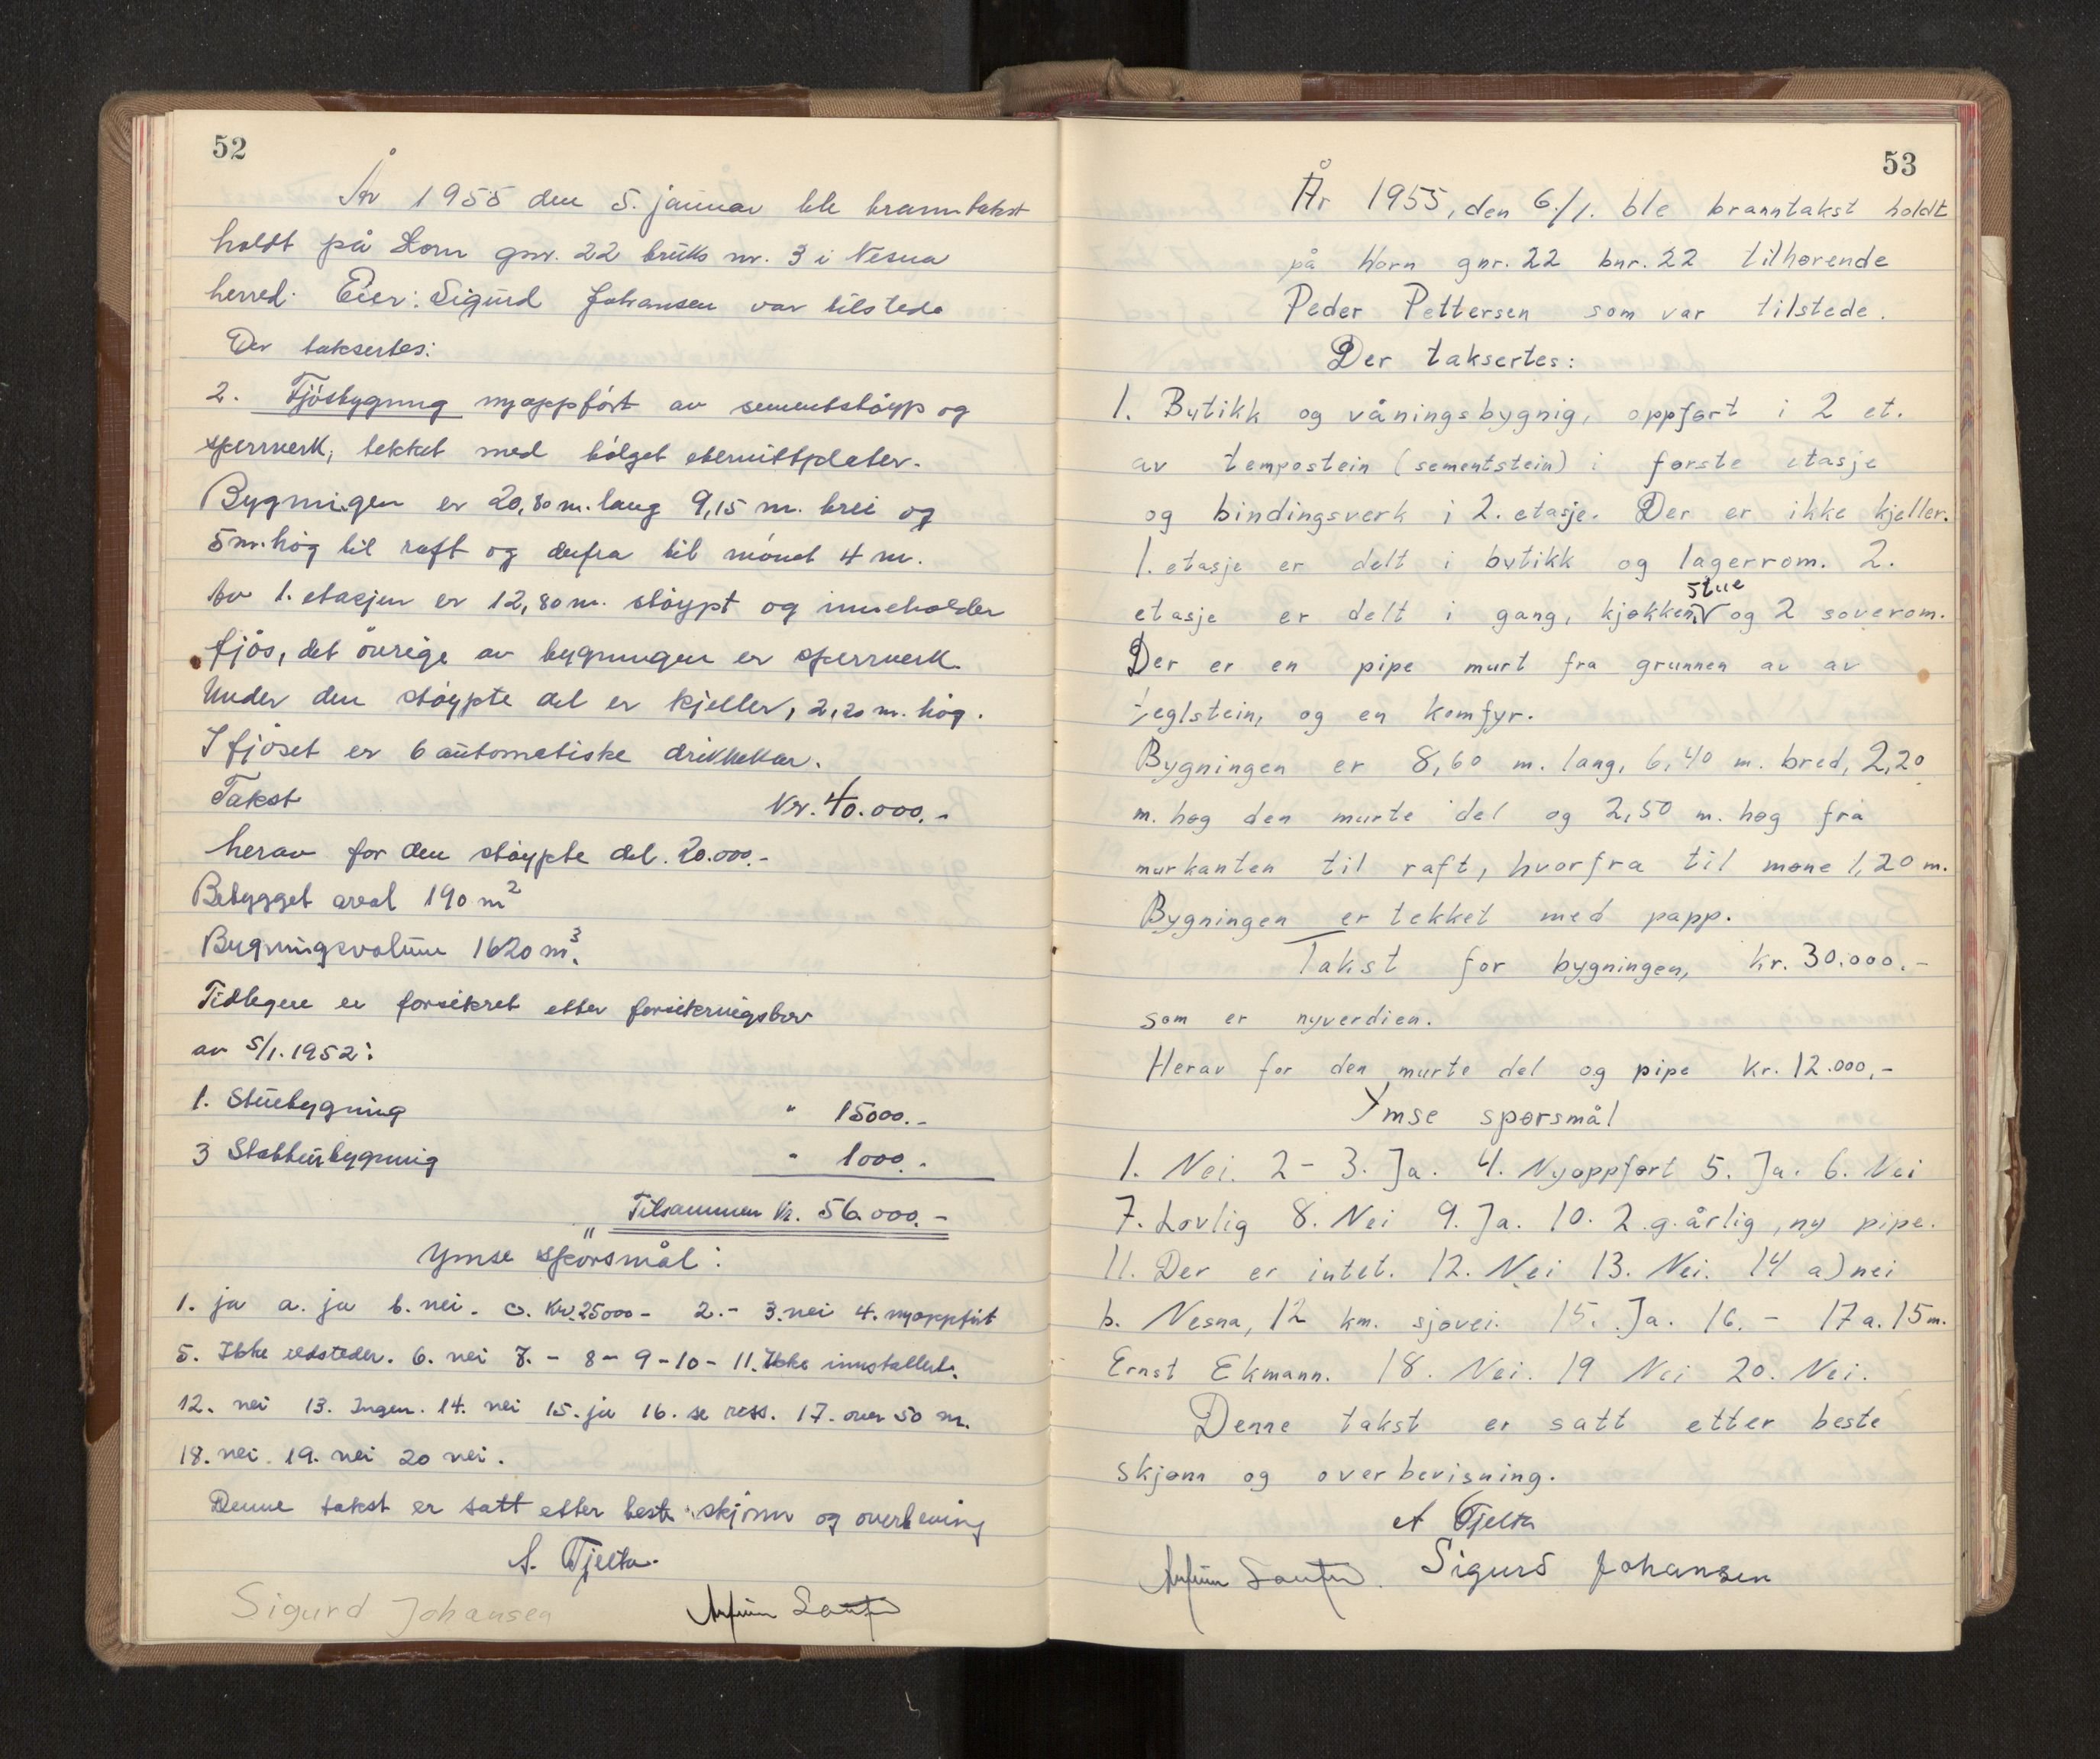 52
År 1955 den 5. januar ble branntakst
holdt på Horn gnr. 22 bruks nr. 3 i Nesna
herred. Eier: Sigurd Johansen var tilstede
Der taksertes:
2. Fjósbygning nyoppfört av sementstöyp og
sperrverk, tekket med bölget eternittplater.
Bygningen er 20,80 m. lang 9,15 m. brei og
5 m. hög til raft og derfra til mönet 4 m.
Av 1. etasjen er 12,80 m. stöypt og inneholder
fjös, det övrige av bygningen er sperrverk.
Under den stöypte del er kjeller, 2,20 m. hög.
I fjöset er 6 automatiske drikkekar.
Takst Kr. 40.000.-
herav for den stöypte del. 20.000.-
Bebygget areal 190 m²
Bygningsvolum 1620 m³.
Tidlegere er forsikret etter forsikringsbev
av 5/1. 1952:
1. Stuebygning " 15000.-
3 Stabbursbygning " 1000.-
Tilsammen kr. 56.000.-
Ymse spörsmål:
1. ja a. ja b. nei. c. Kr. 25000- 2.- 3. nei 4. nyoppfört
5. Ikke ildsteder. 6. nei 7. - 8 - 9 - 10 - 11. Ikke innstallert.
12. nei 13. Ingen. 14. nei 15. ja 16. se ress. 17. over 50 m.
18. nei. 19. nei 20 nei.
Denne takst er satt etter beste skjönn og overbevisning
A. Tjelta.
Sigurd Johansen
53
År 1955, den 6./1. ble branntakst holdt
på Horn gnr. 22 bnr. 22 tilhørende
Peder Pettersen som var tilstede.
Der taksertes:
1. Butikk og våningsbygnig, oppført i 2 et.
av tempostein (sementstein) i første etasje
og bindingsverk i 2. etasje. Der er ikke kjeller.
1. etasje er delt i butikk og lagerrom. 2.
stue
etasje er delt i gang, kjøkken, og 2 soverom.
Der er en pipe murt fra grunnen av av
teglstein, og en komfyr.
Bygningen er 8,60 m. lang, 6,40 m. bred, 2,20
m. høg den murte del og 2,50 m. høg fra
murkanten til raft, hvorfra til møne 1,20 m.
Bygningen er tekket med papp.
Takst for bygningen, kr. 30.000.-
som er nyverdien.
Herav for den murte del og pipe kr. 12.000,-
Ymse spørsmål
1. Nei. 2 - 3. Ja. 4. Nyoppført 5. Ja. 6. Nei
7. Lovlig 8. Nei 9. Ja. 10. 2.g. årlig, ny pipe.
11. Der er intet. 12. Nei 13. Nei. 14 a) nei
b. Nesna, 12 km. sjøvei. 15. Ja. 16. - 17 a. 15 m.
Ernst Ekmann. 18. Nei. 19 Nei 20. Nei.
Denne takst er satt etter beste
skjønn og overbevisning.
A Tjelta
Sigurd Johansen